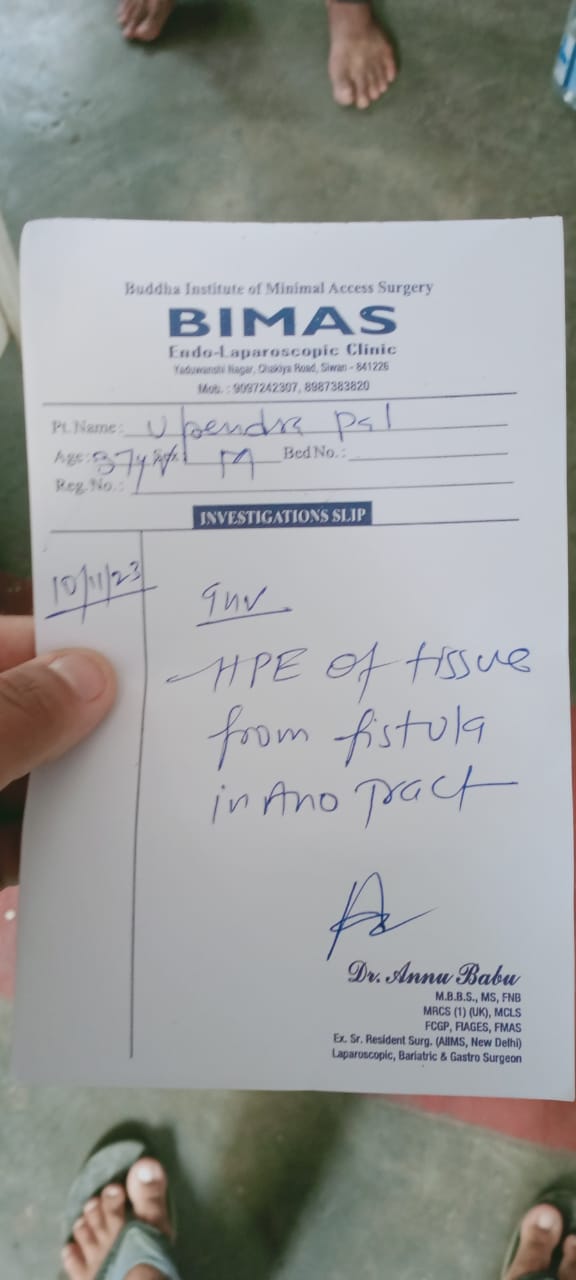 Buddha Institute of Minimal Access Surgery
BIMAS
Endo-Laparoscopic Clinic
Yaduwanshi Nagar, Chakiya Road, Siwan - 841226
Mob. : 9097242307, 8987383820
Pt. Name: Upendra pal
Age: 37y Sex: M Bed No.:
Reg. No.:
INVESTIGATIONS SLIP
10/11/23
Inv
HPE of tissue
from fistula
in Ano Tract
Dr. Annu Babu
M.B.B.S., MS, FNB
MRCS (1) (UK), MCLS
FCGP, FIAGES, FMAS
Ex. Sr. Resident Surg. (AIIMS, New Delhi)
Laparoscopic, Bariatric & Gastro Surgeon